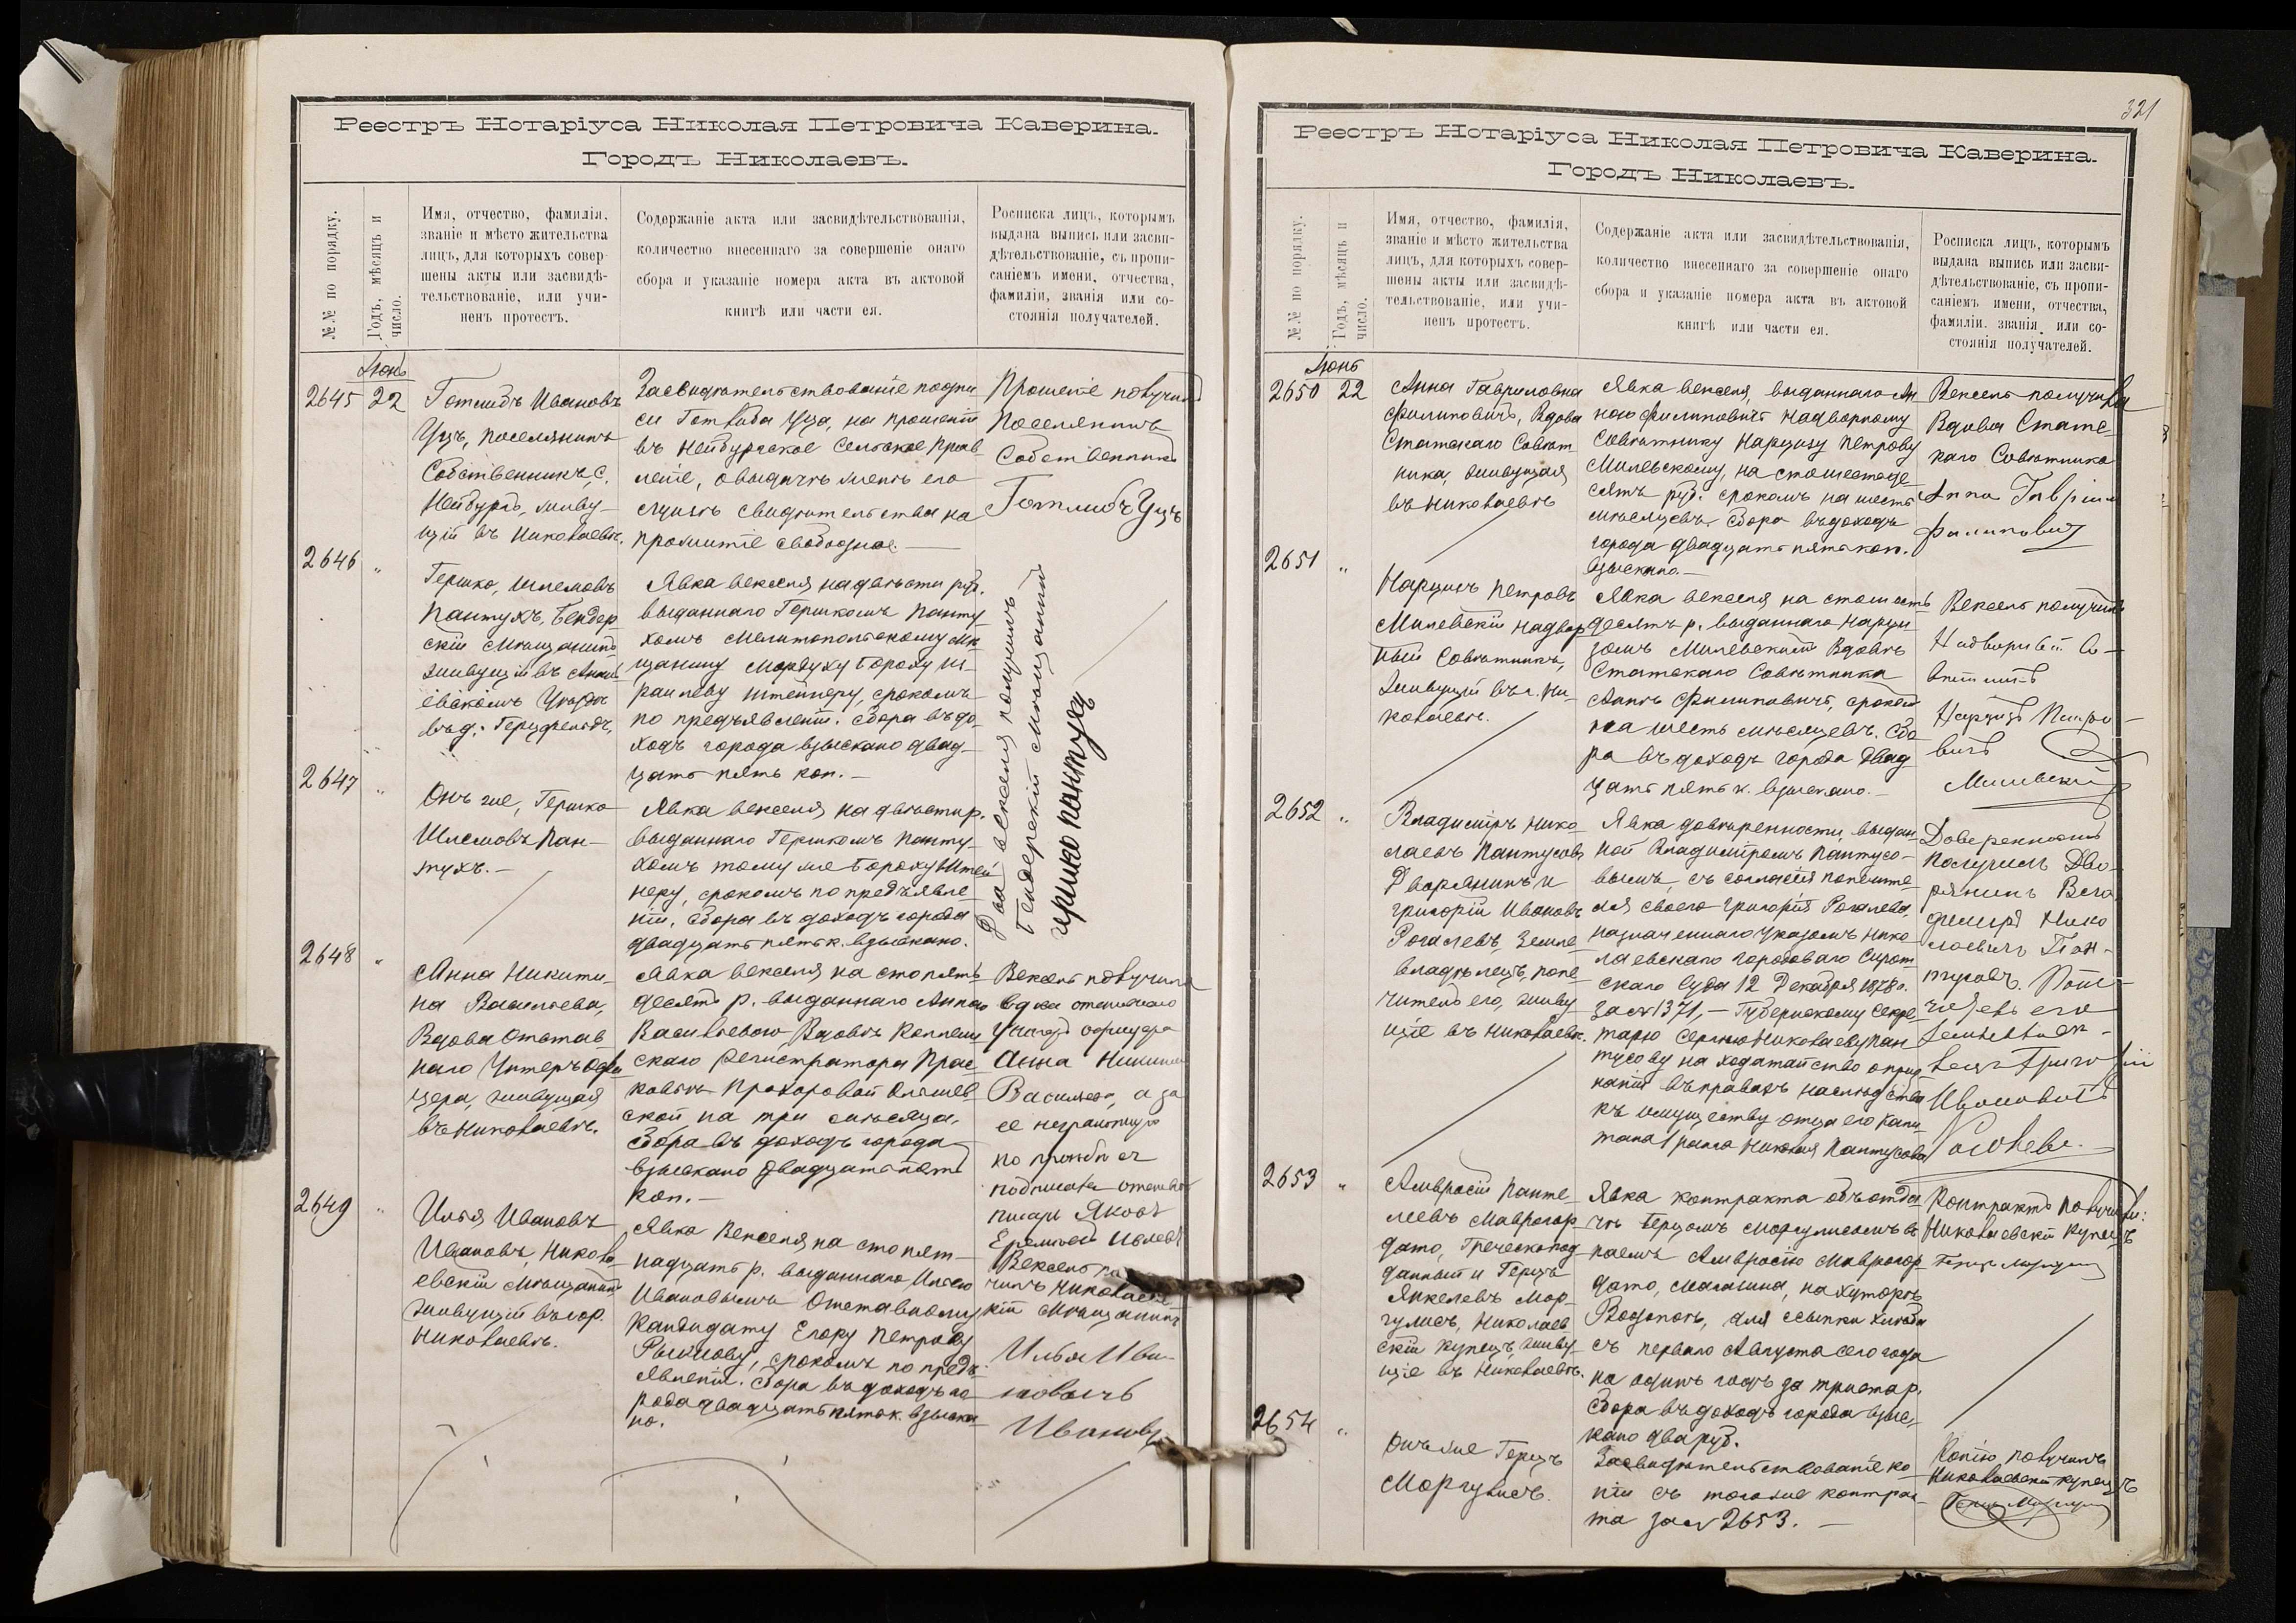 Реестръ Нотаріуса Николая Петровича Каверина.
Городъ Николаевъ.
№№ по порядку.
Годъ, мѣсяцъ и
число.
Имя, отчество, фамилія,
званіе и мѣсто жительства
лицъ, для которыхъ совер-
шены акты или засвидѣ-
тельствованіе, или учи-
ненъ протестъ.
Содержаніе акта или засвидѣтельствованія,
количество внесеннаго за совершеніе онаго
сбора и указаніе номера акта въ актовой
книгѣ или части ея.
Росписка лицъ, которымъ
выдана выпись или засви-
дѣтельствованіе, съ пропи-
саніемъ имени, отчества,
фамиліи, званія или со-
стоянія получателей.
Іюнь
2645 22
Готлибъ Ивановъ
Уцъ, поселянинъ
Собственникъ, С.
Нейбургъ, живу-
щій въ Николаевѣ.
Засвидѣтельствованіе подпи
си Готлиба Уца, на прошеніи
въ Нейбургское Сельское Прав-
леніе, о выдачѣ женѣ его
свидѣтельства на
прожитіе свободное.
Прошеніе получилъ
Поселянинъ
Собственникъ
Готлибъ Уцъ
2646 "
Гершко, Шлемовъ
Пантухъ, Бендер
скій Мѣщанинъ
живущій въ Анань
евскомъ Уѣздѣ
въ д. Герцфельдъ,
Явка векселя на двѣсти руб.
выданнаго Гершкомъ Панту
хомъ Мелитопольскому Мѣ
щанину Мордуху Бороху Из-
раилеву Штейнеру, срокомъ
по предъявленіи. Сбора въ до-
ходъ города взыскано двад-
цать пять коп. —
2647 "
Онъ же, Гершко
Шлемовъ Пан-
тухъ. —
Явка векселя на двѣсти р.
выданнаго Гершкомъ Панту-
хомъ тому же Бороху Штей
неру, срокомъ по предъявле-
ніи. Сбора въ доходъ города
двадцать пять к. взыскано.
Два векселя получилъ
Бендерскій Мѣщанинъ
гришко пантухъ
2648 "
Анна Никити-
на Васильева,
Вдова Отстав-
наго Унтеръ Офи
цера, живущая
въ Николаевѣ.
Явка векселя на сто пять
десятъ р. выданнаго Анною
Васильевою, Вдовѣ Коллеж
скаго Регистратора Прас-
ковьѣ Прохоровой
ской на три мѣсяца.
Сбора въ доходъ города
взыскано двадцать пять
коп. —
Вексель получила
вдова отставнаго
Унтеръ офицера
Анна Никитина
Васильева, а за
ее неграмотную
по просьбѣ ея
подписалъ отставной
писарь Яковъ
2649 "
Илья Ивановъ
Ивановъ, Никола-
евскій Мѣщанинъ
живущій въ гор.
Николаевѣ.
Явка Векселя на сто пят-
надцать р. выданнаго Ильею
Ивановымъ Отставному
Кандидату Егору Петрову
срокомъ по предъ-
явленіи. Сбора въ доходъ го-
рода двадцать пять к. взыска-
но.
Вексель полу
чилъ Николаевс
кій Мѣщанинъ
Илья Ива-
новичь
Ивановъ
321
Реестръ Нотаріуса Николая Петровича Каверина.
Городъ Николаевъ.
№№ по порядку.
Годъ, мѣсяцъ и
число.
Имя, отчество, фамилія,
званіе и мѣсто жительства
лицъ, для которыхъ совер-
шены акты или засвидѣ-
тельствованіе, или учи-
ненъ протестъ.
Содержаніе акта или засвидѣтельствованія,
количество внесеннаго за совершеніе онаго
сбора и указаніе номера акта въ актовой
книгѣ или части ея.
Росписка лицъ, которымъ
выдана выпись или засви-
дѣтельствованіе, съ пропи-
саніемъ имени, отчества,
фамиліи, званія или со-
стоянія получателей.
Іюнь
2650 22
Анна Гавриловна
Филиповичъ, Вдова
Статскаго Совѣт
ника, живущая
въ Николаевѣ
Явка векселя, выданнаго Ан
ною Филиповичъ Надворному
Совѣтнику Нарцизу Петрову
Милевскому, на сто шестьде
сятъ руб. срокомъ на шесть
мѣсяцевъ. Сбора въ доходъ
города двадцать пять коп.
взыскано. —
Вексель получила
Вдова Статс-
каго Совѣтника
Анна Гаврил
Филиповичъ
2651 "
Нарцисъ Петровъ
Милевскій Надвор
ный Совѣтникъ,
живущій въ г. Ни-
колаевѣ.
Явка векселя на сто шесть
десятъ р. выданнаго Нарци-
зомъ Милевскимъ Вдовѣ
Статскаго Совѣтника
Аннѣ Филиповичъ, срокомъ
на шесть мѣсяцевъ. Сбо
ра въ доходъ города двад
цать пять к. взыскано. —
Вексель получилъ
Надворный Со-
вѣтникъ
Нарцизъ Петро-
вичъ
Милевскій
2652 "
Владиміръ Нико-
лаевъ Пантусовъ
Дворянинъ и
Григорій Ивановъ
Рогалевъ, Земле-
владѣлецъ, попе-
читель его, живу
щіе въ Николаевѣ.
Явка довѣренности, выдан
ной Владиміромъ Пантусо-
вымъ, съ согласія попечите-
ля своего Григорія Рогалева,
назначеннаго Указомъ Нико-
лаевскаго Городоваго Сирот
скаго Суда 12 Декабря 1878 г.
за № 1371, — Губернскому Секре
тарю Сергѣю Николаеву Пан
тусову на ходатайство о приз
наніи въ правахъ наслѣдства
къ имуществу отца его Капи
тана 1 ранга Николая Пантусова
Доверенность
получилъ Дво-
рянинъ Вла-
димиръ Нико
лаевичъ Пан-
тусовъ. Попе-
читель его
Землевладѣ-
лецъ Григорій
Ивановичъ
Рогалевъ.
2653 "
Амвросій Панте-
леевъ Маврогор-
дато, Греческоподданный и Герцъ
Янкелевъ Мор-
гулисъ, Николаев
скій купецъ, живу-
щіе въ Николаевѣ.
Явка контракта объ отда
чѣ Герцомъ Моргулисомъ въ
наемъ Амвросію Маврогор-
дато, магазина, на хуторѣ
Водопоѣ, для ссыпки хлѣба
съ перваго Августа сего года
на одинъ годъ за триста р.
Сбора въ доходъ города взыс-
кано два руб.
Контрактъ получилъ:
Николаевскій купецъ
2654 "
Онъ же Герцъ
Моргулисъ.
Засвидѣтельствованіе ко-
піи съ того же контрак-
та за № 2653. —
Копію получилъ
Николаевскій купецъ